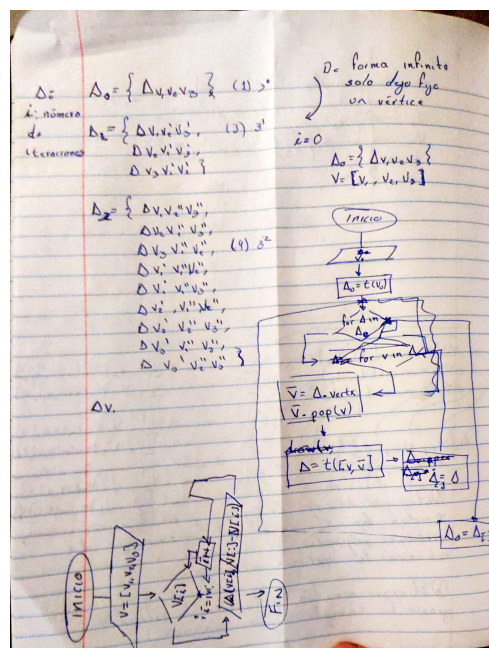 Δi
i: número
de
iteraciones
Δ₀ = { Δ v₁ v₂ v₃ } (1) 3⁰
Δ₁ = { Δ v₁ v₂' v₃',
Δ v₂ v₁' v₃',
Δ v₃ v₁' v₂' }
(3) 3¹
Δ₂ = { Δ v₁ v₂'' v₃'',
Δ v₂ v₁'' v₃'',
Δ v₃ v₁'' v₂'',
Δ v₁' v₁'' v₂'',
Δ v₁' v₁'' v₃'',
Δ v₂' v₁'' v₂'',
Δ v₂' v₂'' v₃'',
Δ v₃' v₁'' v₃'',
Δ v₃' v₂'' v₃'' }
(9) 3²
Δ v₁
D= forma infinita
solo dejo fijo
un vértice
i=0
Δ₀ = { Δ v₁ v₂ v₃ }
V = [v₁, v₂, v₃]
INICIO
V₀
Δ₀ = t(V₀)
for Δ in
Δ₀
for v in Δ
V̄ = Δ.vertx
V̄.pop(v)
Δ = t([v, v̄])
Δj = Δ
INICIO
V = [v₁, v₂, v₃]
V[i]
i++
FIN